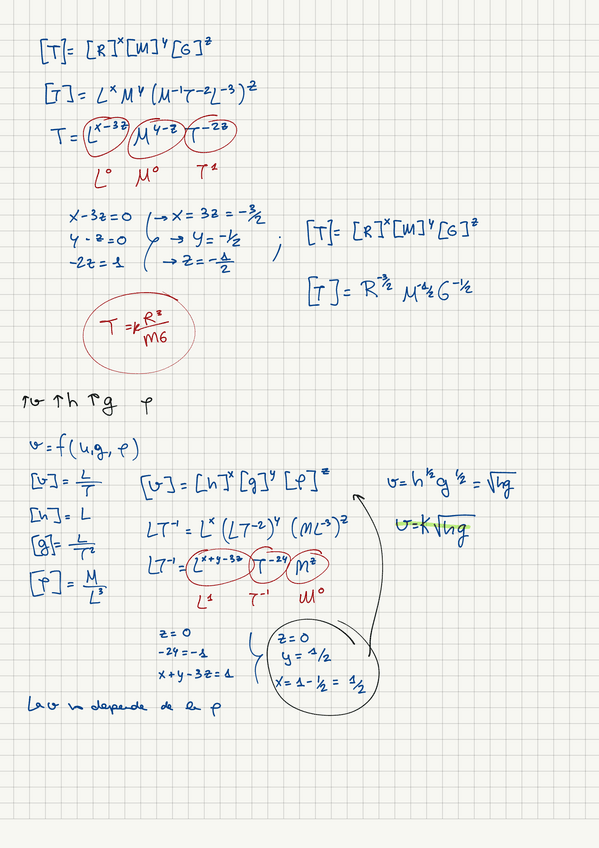 [T] = [R]^x [M]^y [G]^z
[T] = L^x M^y (M^-1 T^-2 L^-3)^z
T = L^x-3z M^y-z T^-2z
L^0 M^0 T^1
x-3z=0 → x = 3z = -3/2
y-z=0 → y = -1/2
-2z=1 → z = -1/2
; [T] = [R]^x [M]^y [G]^z
[T] = R^-3/2 M^-1/2 G^-1/2
T = k R^3/MG
↑v ↑h ↑g ρ
v = f(h, g, ρ)
[v] = L/T
[h] = L
[g] = L/T^2
[ρ] = M/L^3
[v] = [h]^x [g]^y [ρ]^z
LT^-1 = L^x (LT^-2)^y (ML^-3)^z
LT^-1 = L^x+y-3z T^-2y M^z
L^1 T^-1 M^0
z=0
-2y=-1
x+y-3z=1
z=0
y = 1/2
x = 1-1/2 = 1/2
v = h^1/2 g^1/2 = √hg
v = K√hg
La v no depende de la ρ